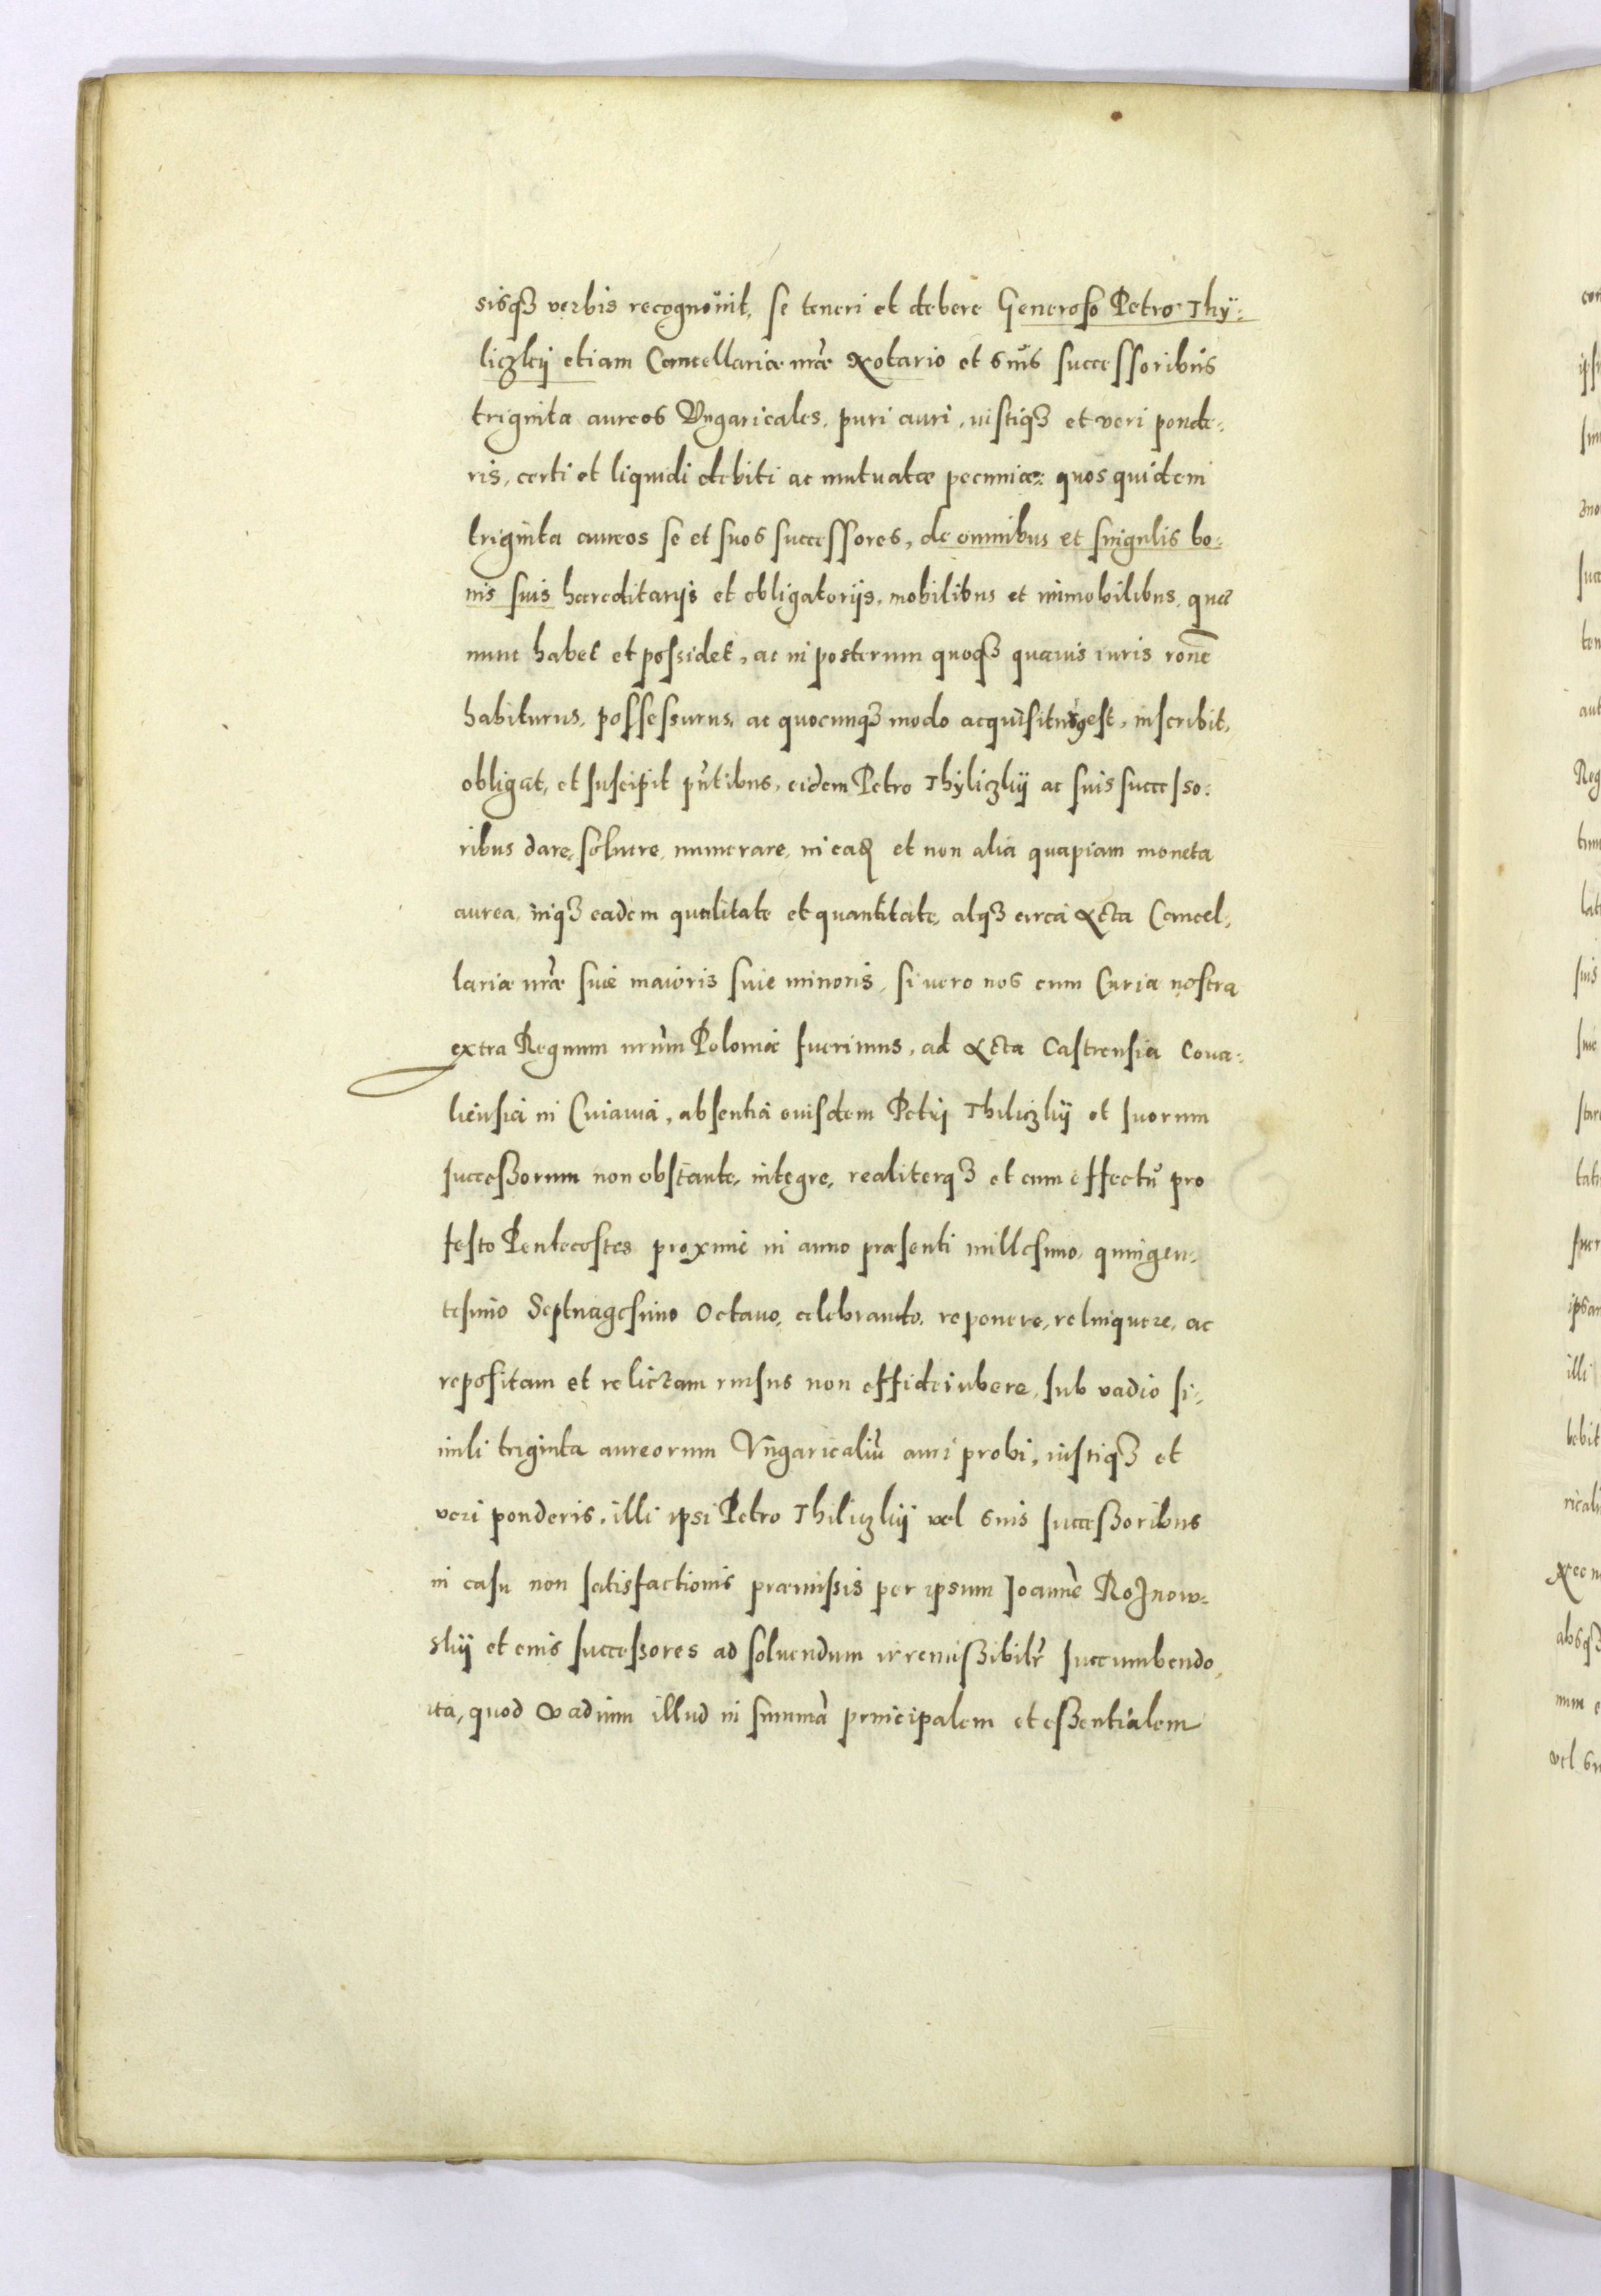 sisq3 verbis recognouit, se teneri et debere Generoso Petro Thÿ:
liczkij etiam Cancellariæ nræ Notario et suis successoribus
triginta aureos Vngaricales, puri auri, iustiq3 et veri ponde:
ris, certi et liquidi debiti ac mutuatæ pecuniæ: quos quidem
triginta aureos se et suos successores, de omnibus et singulis bo:
nis suis hæreditarijs et obligatorijs, mobilibus et immobilibus, quæ
nunc habet et possidet, ac in posterum quoq3 quauis iuris rone
habiturus, possessurus, ac quocunq3 modo acquisiturus est, inscribit,
obligat, et suscipit pntibus, eidem Petro Thÿliczkij ac suis successo:
ribus dare, soluere, numerare, in ead et non alia quapiam moneta
aurea, inq3 eadem qualitate et quantitate, atq3 circa Acta Cancel:
lariæ nræ siue maioris siue minoris, si vero nos cum Curia nostra
extra Regnum nrum Poloniæ fuerimus, ad Acta Castrensia Coua:
liensia in Cuiauia, absentia eiusdem Petri Thiliczkij et suorum
successorum non obstante, integre, realiterq3 et cum effectu pro
festo Pentecostes proxime in anno præsenti millesimo, quingen:
tesimo Septuagesimo Octauo, celebrando, reponere, relinquere, ac
repositam et relictam rursus non effideiubere, sub vadio si:
mili triginta aureorum Vngaricaliu auri probi, iustiq3 et
veri ponderis, illi ipsi Petro Thiliczkij vel suis successoribus
in casu non satisfactionis præmissis per ipsum Joanne Roznow:
skij et eius successores ad soluendum irremissibilr succumbendo,
ita, quod vadium illud in summa principalem et essentialem